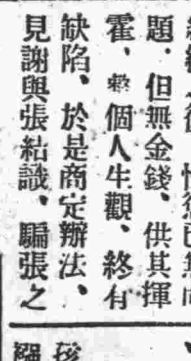 題、但無金錢、供其揮
霍、整個人生觀、終有
缺陷、於是商定辦法、
見謝與張結識、騙張之